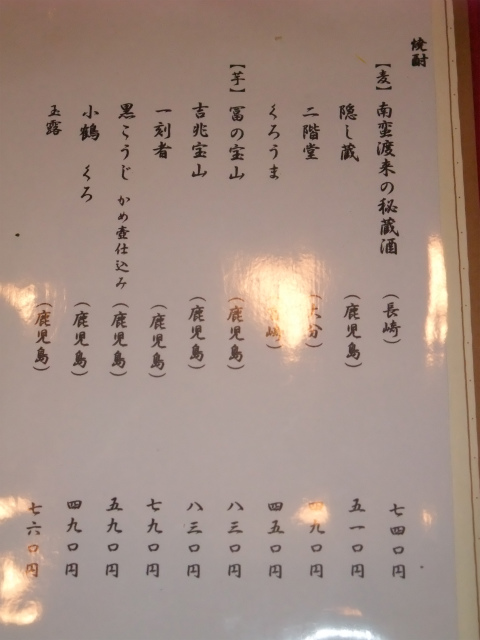 焼酎
【麦】南蛮渡来の秘蔵酒（長崎）七四〇円
隠し蔵（鹿児島）五一〇円
二階堂（大分）四九〇円
くろうま 四五〇円
【芋】冨の宝山（鹿児島）八三〇円
吉兆宝山（鹿児島）八三〇円
一刻者（鹿児島）七九〇円
黒こうじ かめ壺仕込み（鹿児島）五九〇円
小鶴 くろ（鹿児島）四九〇円
玉露（鹿児島）七六〇円